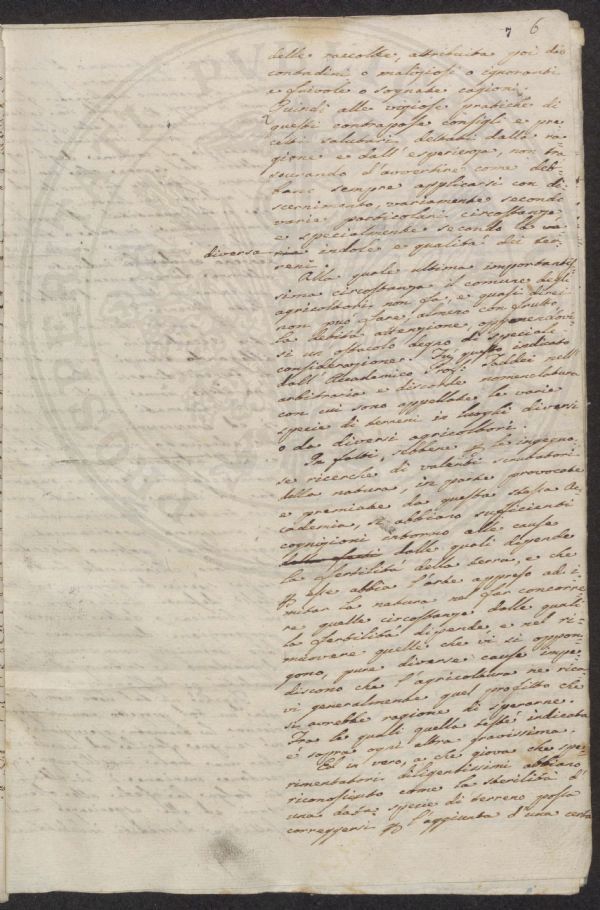 7 6
delle raccolte, attribuita poi dai
contadini o maliziosi o ignoranti
a frivole o sognate cagioni.
Quindi alle viziose pratiche di
questi contrappose consigli e pre
cetti salutari dettati dalla ra
gione e dall'esperienza, non tra
scurando d'avvertire come deb
bano sempre applicarsi con di
scernimento, variamente secondo
varie particolari circostanze
e specialmente secondo la va
diversa ria indole e qualità dei ter
reni.
Alla quale ultima importantis
sima circostanza il comune degli
agricoltori non fa, e quasi direi
non può fare, almeno con frutto,
la debita attenzione, opponendovi
si un ostacolo degno di speciale
considerazione. Fu questo indicato
dall'Accademico Prof. Taddei nell'
arbitraria e discorde nomenclatura
con cui sono appellate le varie
specie di terreni in luoghi diversi
o da diversi agricoltori.
In fatti, sebbene p le ingegno
se ricerche di valenti scrutatori
della natura, in parte provocate
e premiate da questa stessa Ac
cademia, si abbiano sufficienti
cognizioni intorno alle cause
dalle quali dipende
la fertilità della terra, e che
p esse abbia l'arte appreso ad i
mitar la natura nel far concorre
re quelle circostanze dalle quali
la fertilità dipende, e nel ri
muovere quelle che vi si oppon
gono, pure diverse cause impe
discono che l'agricoltura ne rica
vi generalmente quel profitto che
si avrebbe ragione di sperarne.
Fra le quali quella testè indicata
è sopra ogni altra gravissima.
Ed in vero, a che giova che spe
rimentatori diligentissimi abbiano
riconosciuto come la sterilità d'
una data specie di terreno possa
correggersi p l'aggiunta d'una certa